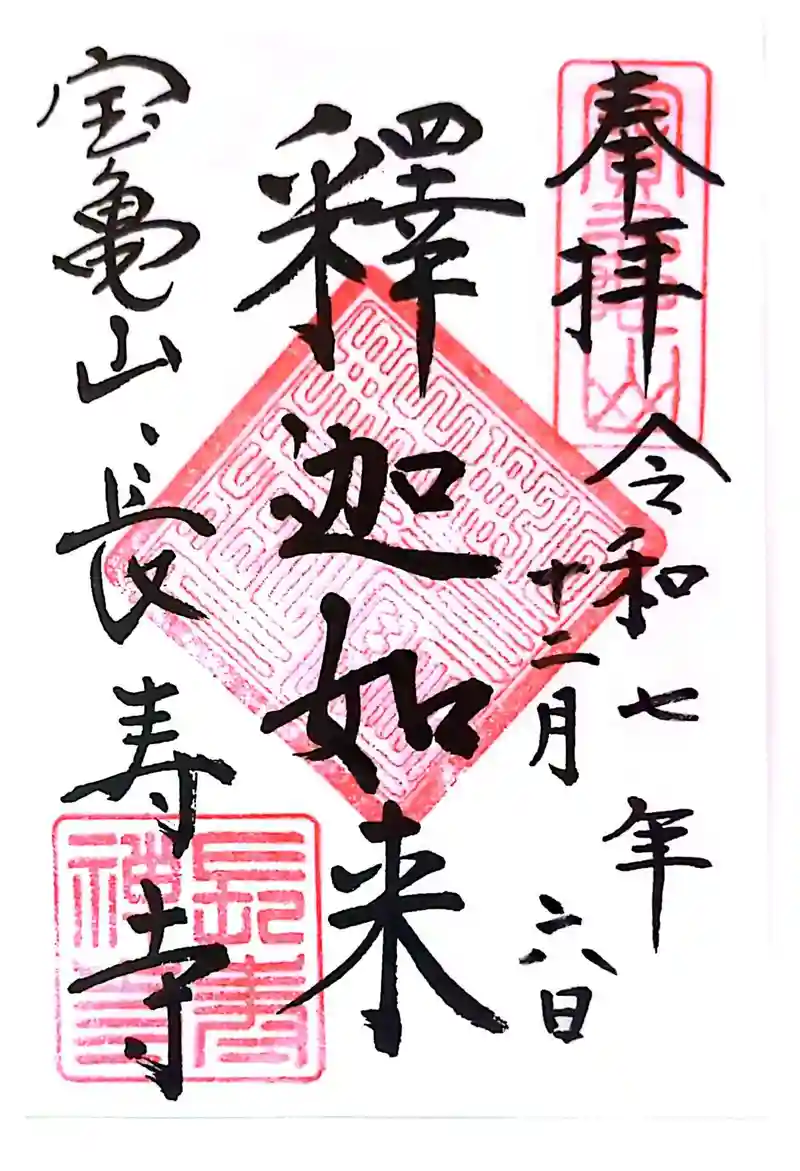 奉拝
令和七年
十二月六日
釋迦如来
宝亀山長寿寺
寶亀山
長壽禅寺